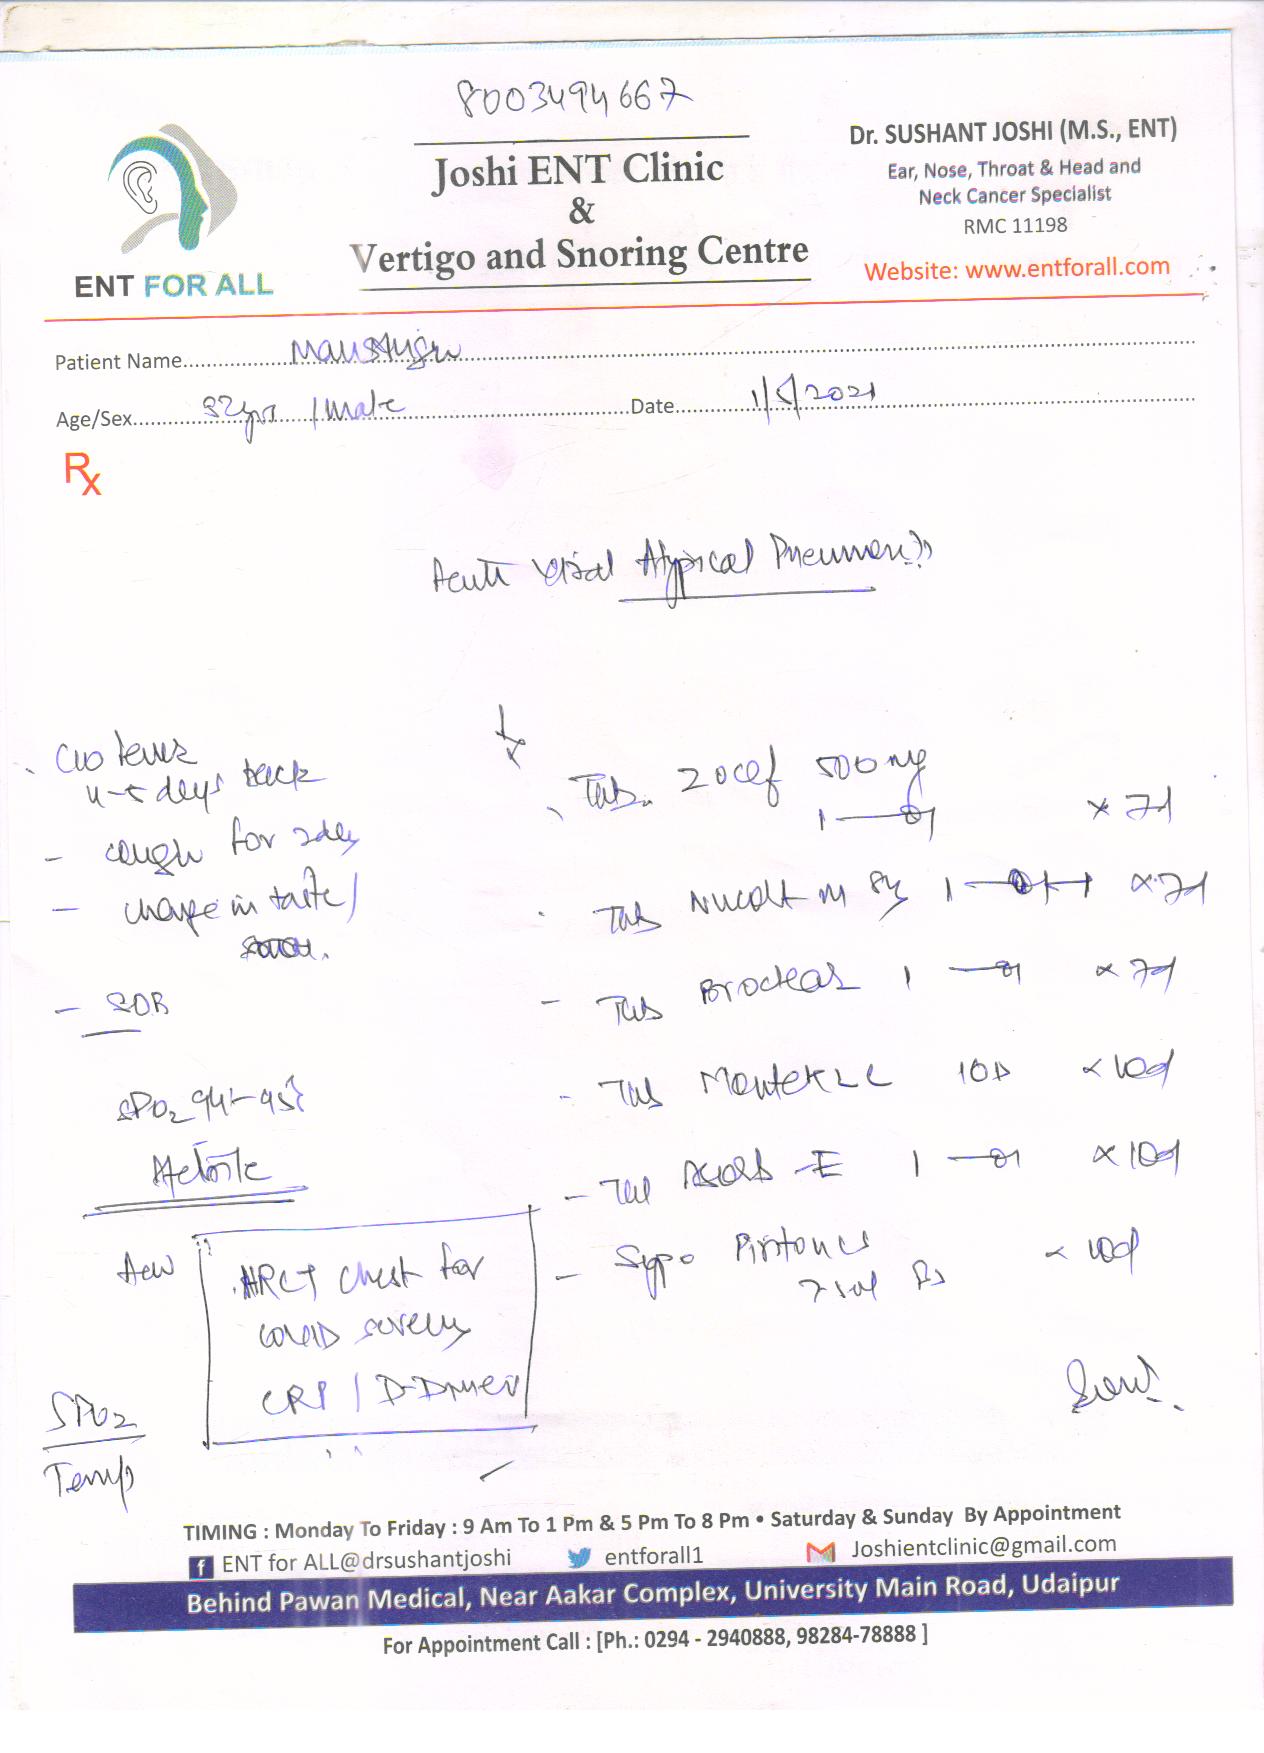 8003494667
Joshi ENT Clinic
&
Vertigo and Snoring Centre
ENT FOR ALL
Dr. SUSHANT JOSHI (M.S., ENT)
Ear, Nose, Throat & Head and
Neck Cancer Specialist
RMC 11198
Website: www.entforall.com
Patient Name
Age/Sex 32yrs / male Date 1/5/2021
Rx
Acute Viral Atypical
4-5 days back
- cough for 2 days
- change in taste /
- SOB
SPO2 94-95
Afebrile
HRCT Chest for
COVID
CRP / D-Dimer
SPO2
Temp
Tab. 500 mg
1 — 1 x 7d
Tab x 7d
- Tab 1 — 1 x 7d
- Tab Montek LC 1 OD x 10d
- 1 — 1 x 10d
- Syp. x 10d
TIMING : Monday To Friday : 9 Am To 1 Pm & 5 Pm To 8 Pm • Saturday & Sunday By Appointment
ENT for ALL@drsushantjoshi entforall1 Joshientclinic@gmail.com
Behind Pawan Medical, Near Aakar Complex, University Main Road, Udaipur
For Appointment Call : [Ph.: 0294 - 2940888, 98284-78888 ]